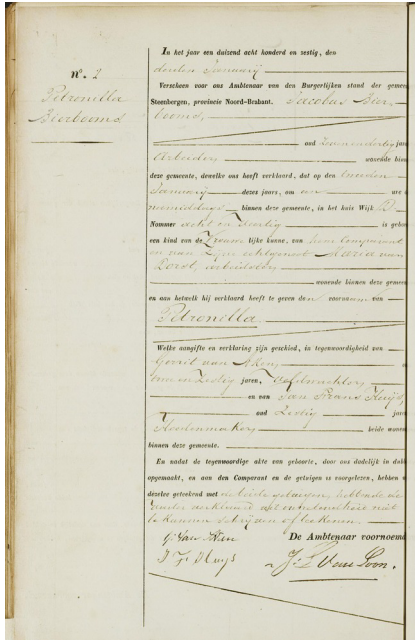 N. 2
Petronella
Bierbooms
In het jaar een duizend acht honderd en zestig, den
derden Januarij
Verscheen voor ons Ambtenaar van den Burgerlijken stand der gemeen
Steenbergen, provincie Noord-Brabant. Jacobus Bier-
booms,
oud jaren
Arbeider wonende bin
deze gemeente, dewelke ons heeft verklaard, dat op den tweeden
Januarij dezes jaars, om een ure
namiddags binnen deze gemeente, in het huis Wijk
Nommer acht en is gebo
een kind van de Vrouwe lijke kunne, van hem Comparant
en van zijne echtgenoot Maria van
Dorst, arbeidster
wonende binnen deze gemeen
en aan hetwelk hij verklaard heeft te geven den voornaam van
Petronella
Welke aangifte en verklaring zijn geschied, in tegenwoordigheid van
Gerrit van Aken
en Zestig jaren, Veldwachter,
en van Jan Frans Huijs,
oud Zestig jaren
Klompenmaker beide wonen
binnen deze gemeente.
En nadat de tegenwoordige akte van geboorte, door ons dadelijk in dub
opgemaakt, en aan den Comparant en de getuigen is voorgelezen, hebben
dezelve geteekend met de beide getuigen, hebbende de
ander verklaard uit onbekendheid niet
te kunnen schrijven of teekenen.
G: van Aken
De Ambtenaar voornoemd
J F Huijs
J: L Van Loon.